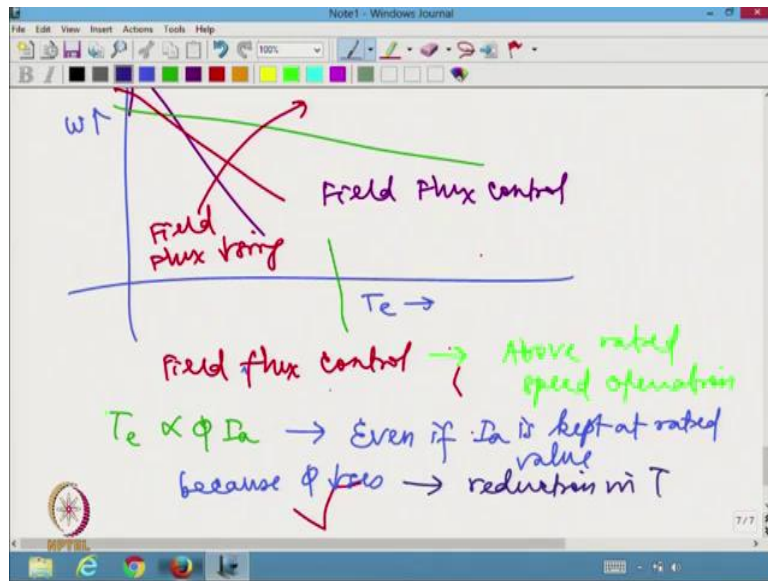 Note1 - Windows Journal
File Edit View Insert Actions Tools Help
100%
B I
ω↑
Field Flux control
Field
flux ↓sing
Te →
Field flux control → Above rated
speed operation
Te ∝ φ Ia → Even if Ia is kept at rated
value
because φ ↓ses → reduction in T
7/7
NPTEL